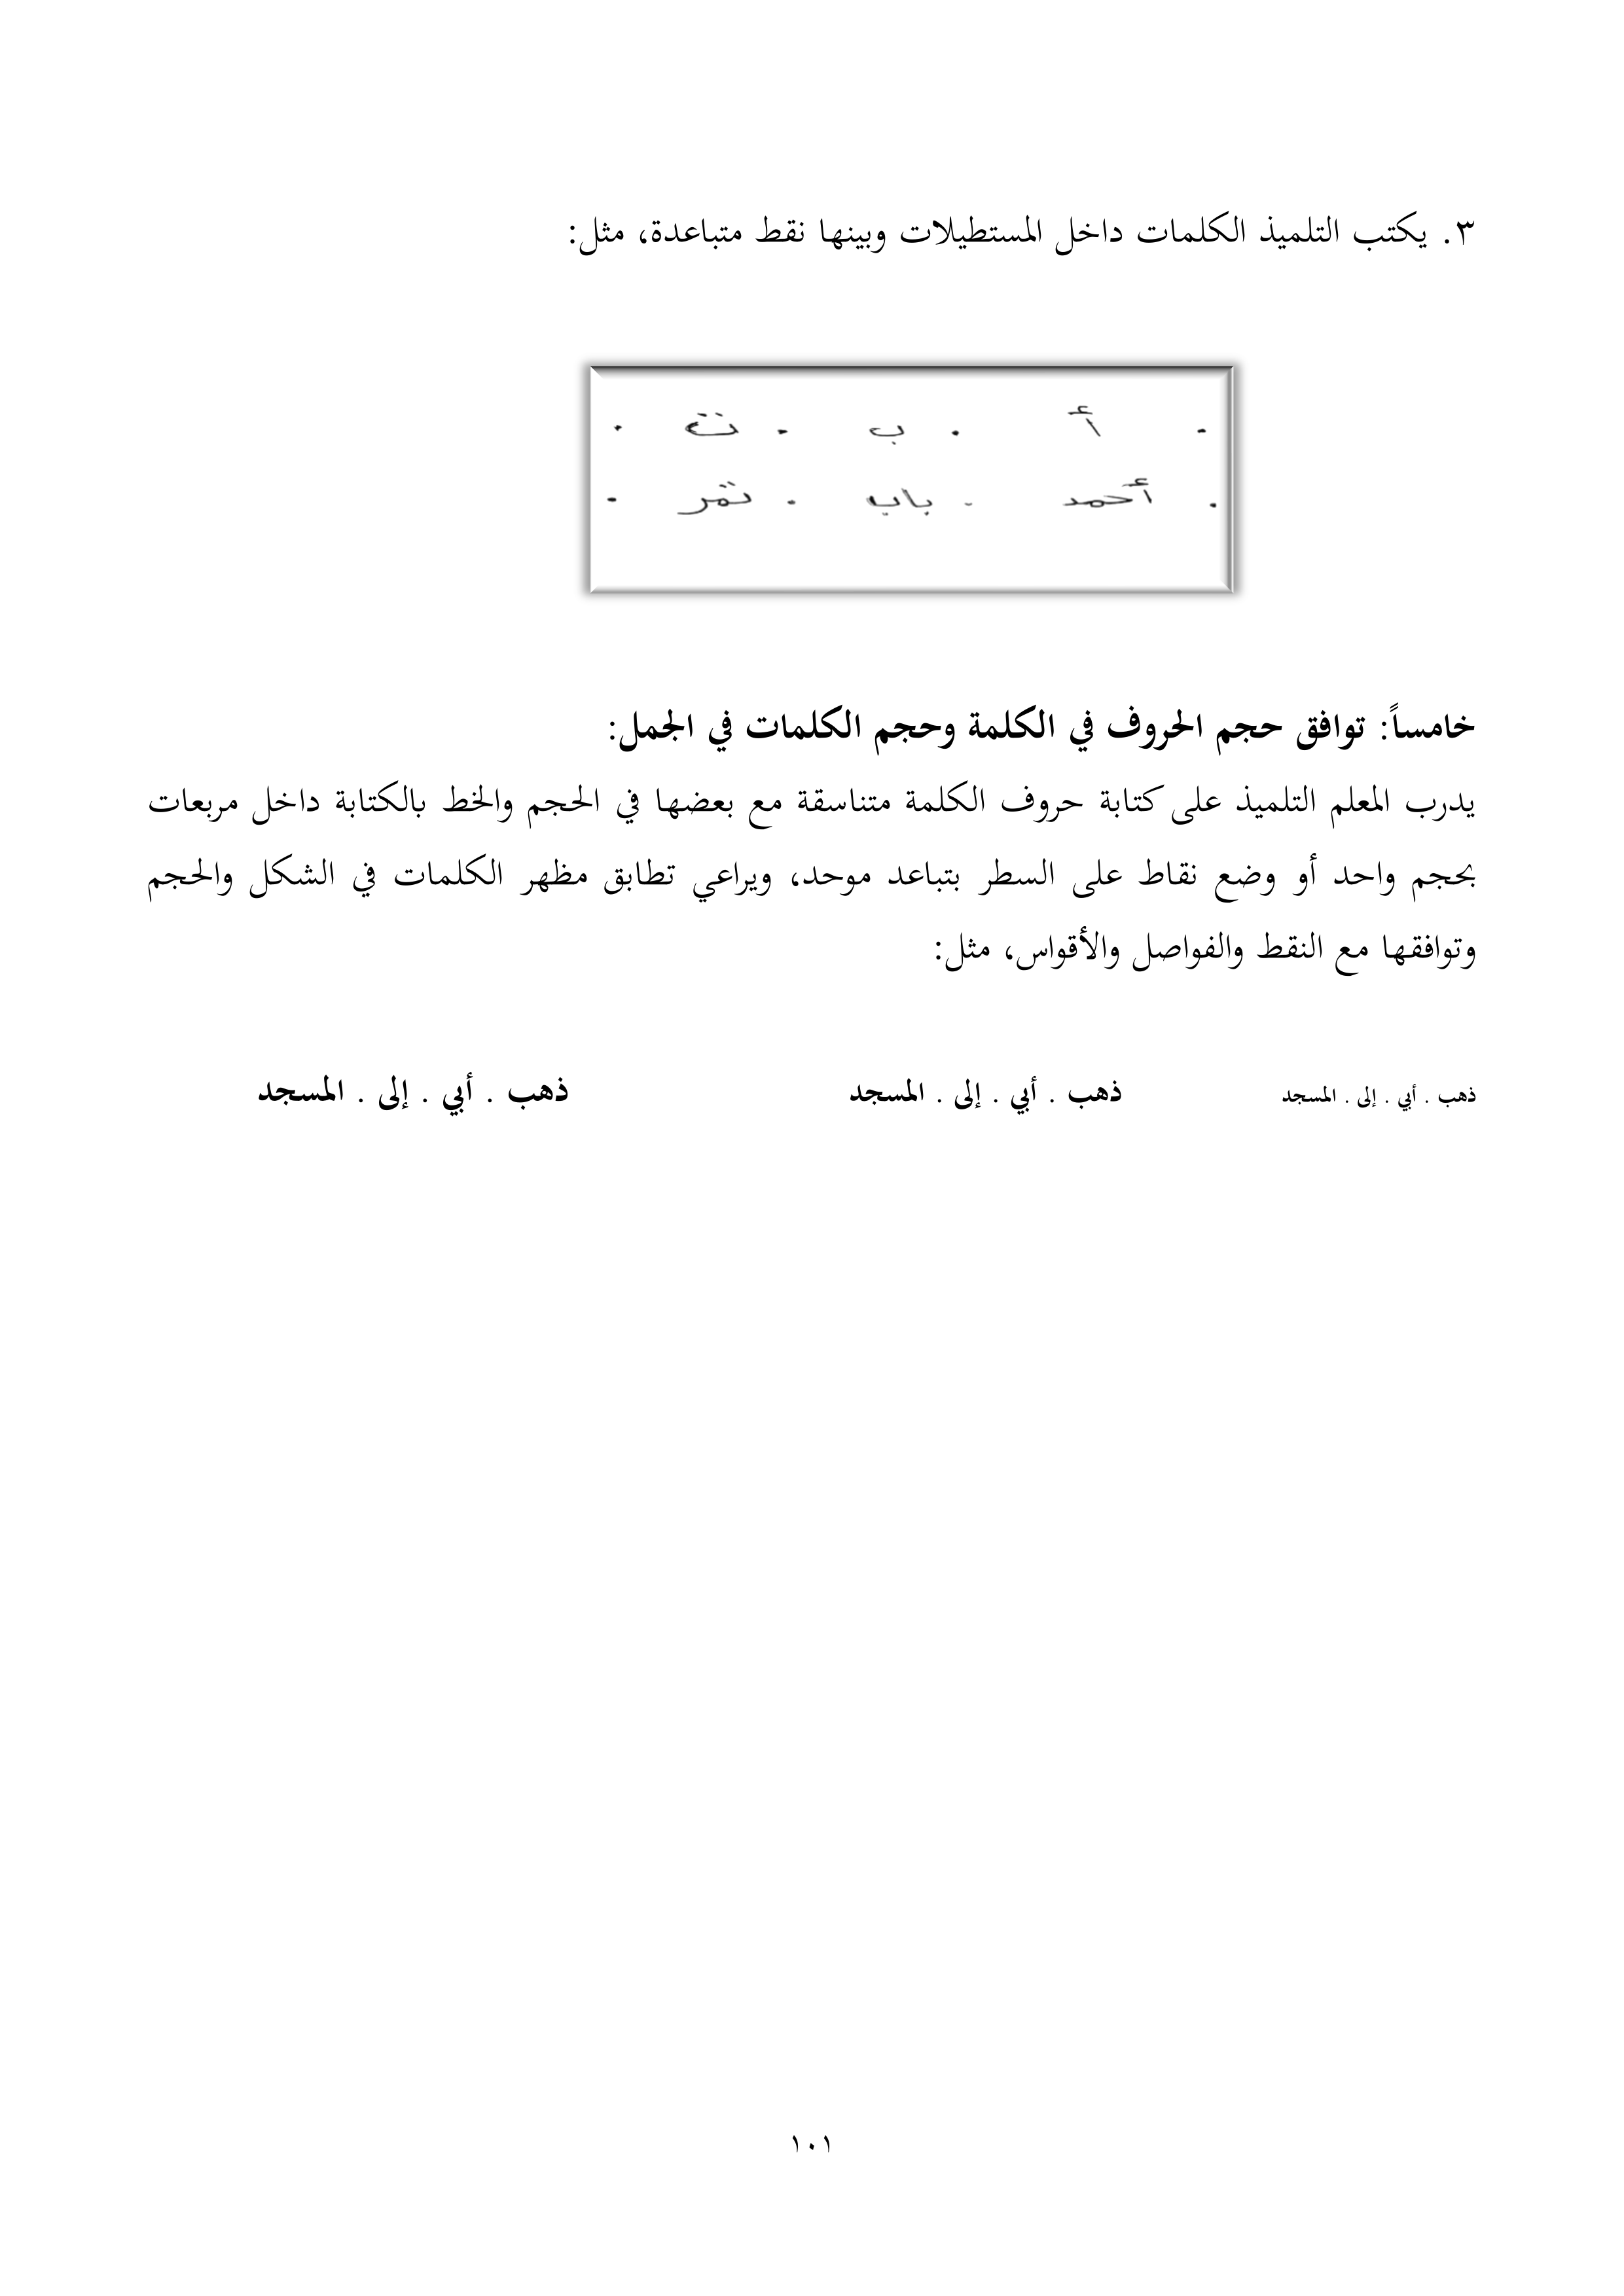 ٣. يكتب التلميذ الكلمات داخل المستطيلات وبينها نقط متباعدة، مثل:
. أ . ب . ت .
. أحمد . باب . تمر .
خامساً: توافق حجم الحروف في الكلمة وحجم الكلمات في الجمل:
يدرب المعلم التلميذ على كتابة حروف الكلمة متناسقة مع بعضها في الحجم والخط بالكتابة داخل مربعات
بحجم واحد أو وضع نقاط على السطر بتباعد موحد، ويراعي تطابق مظهر الكلمات في الشكل والحجم
وتوافقها مع النقط والفواصل والأقواس، مثل:
ذهب . أبي . إلى . المسجد ذهب . أبي . إلى . المسجد ذهب . أبي . إلى . المسجد
١٠١